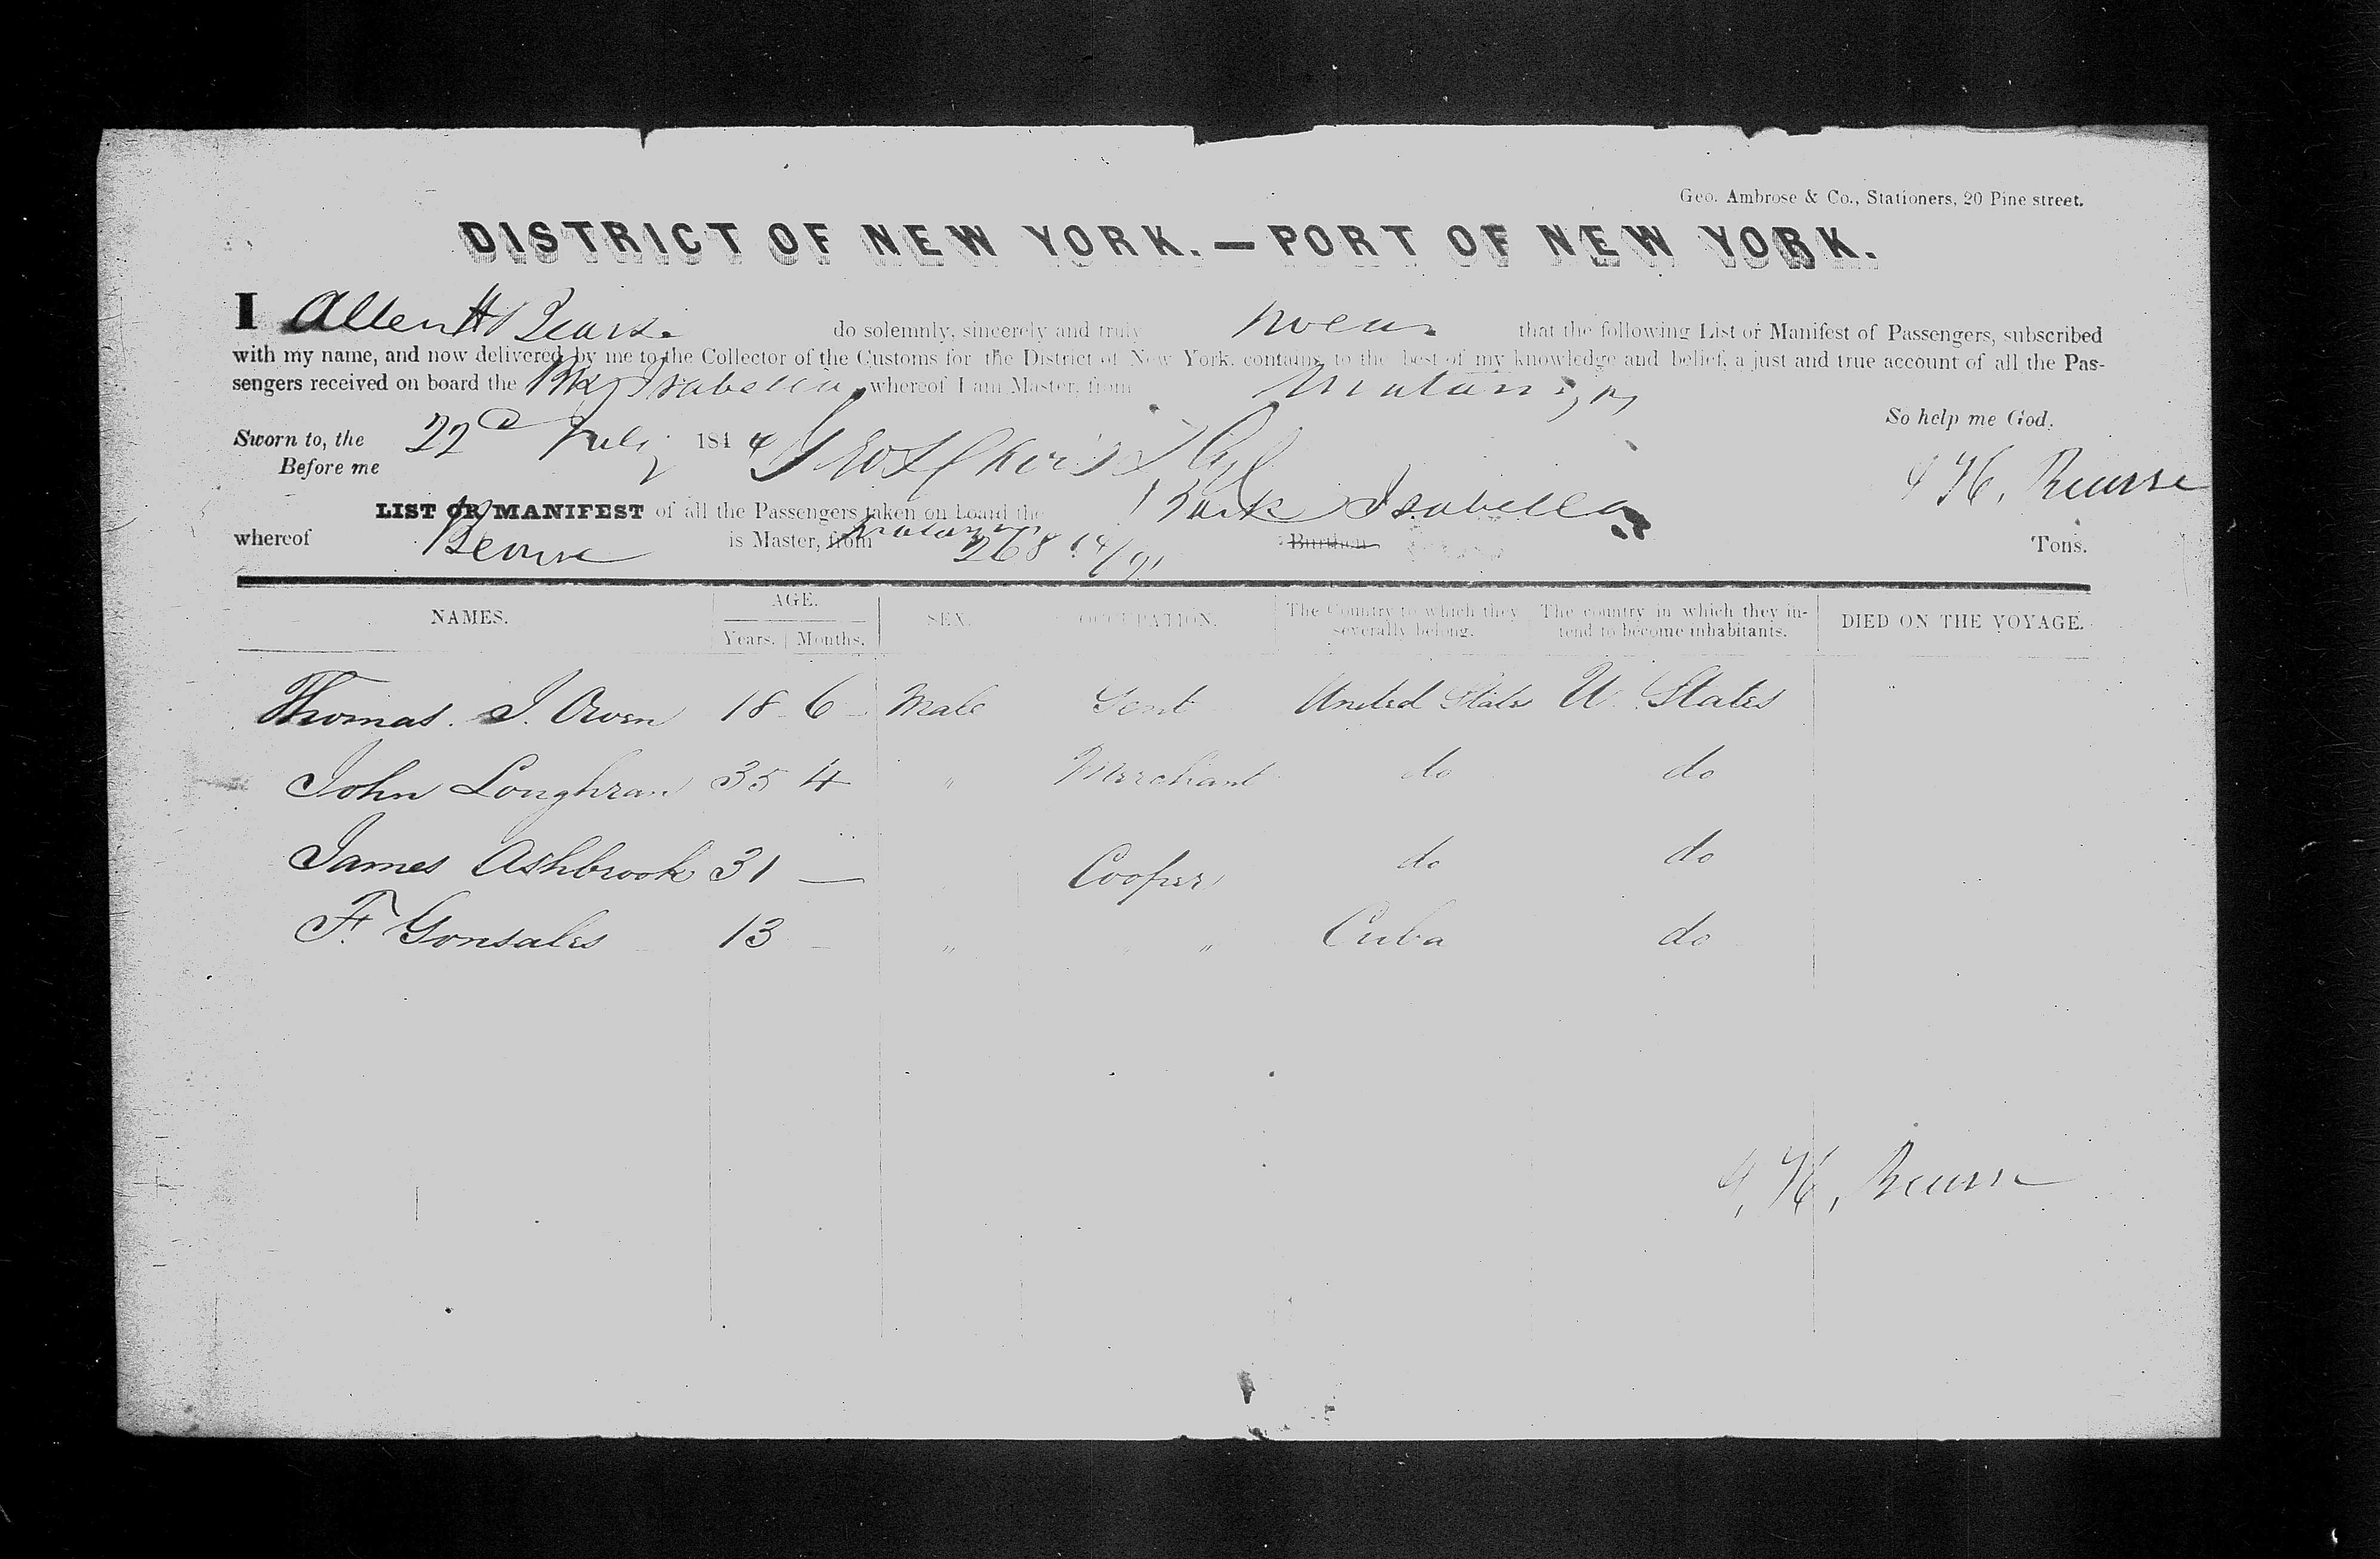 Geo. Ambrose & Co., Stationers, 20 Pine street.
DISTRICT OF NEW YORK.—PORT OF NEW YORK.
I Allen H Bearse do solemnly, sincerely and truly swear that the following List or Manifest of Passengers, subscribed
with my name, and now delivered by me to the Collector of the Customs for the District of New York, contains, to the best of my knowledge and belief, a just and true account of all the Pas-
sengers received on board the Isabella whereof I am Master, from Matanzas
So help me God.
Sworn to, the 22d July 1844
Before me
A H, Bearse
LIST OR MANIFEST of all the Passengers taken on board the Bark Isabella
whereof Bearse is Master, from Matanzas 268 14/91 Burthen Tons.
NAMES. AGE. SEX. OCCUPATION. The Country to which they severally belong. The country in which they in-tend to become inhabitants. DIED ON THE VOYAGE.
Years. Months.
Thomas. J. Owen 18 6 Male Gent United States U. States
John Loughran 35 4 " Merchant do do
James Ashbrook 31 — Cooper do do
F. Gonsales 13 — " " Cuba do
A, H, Bearse